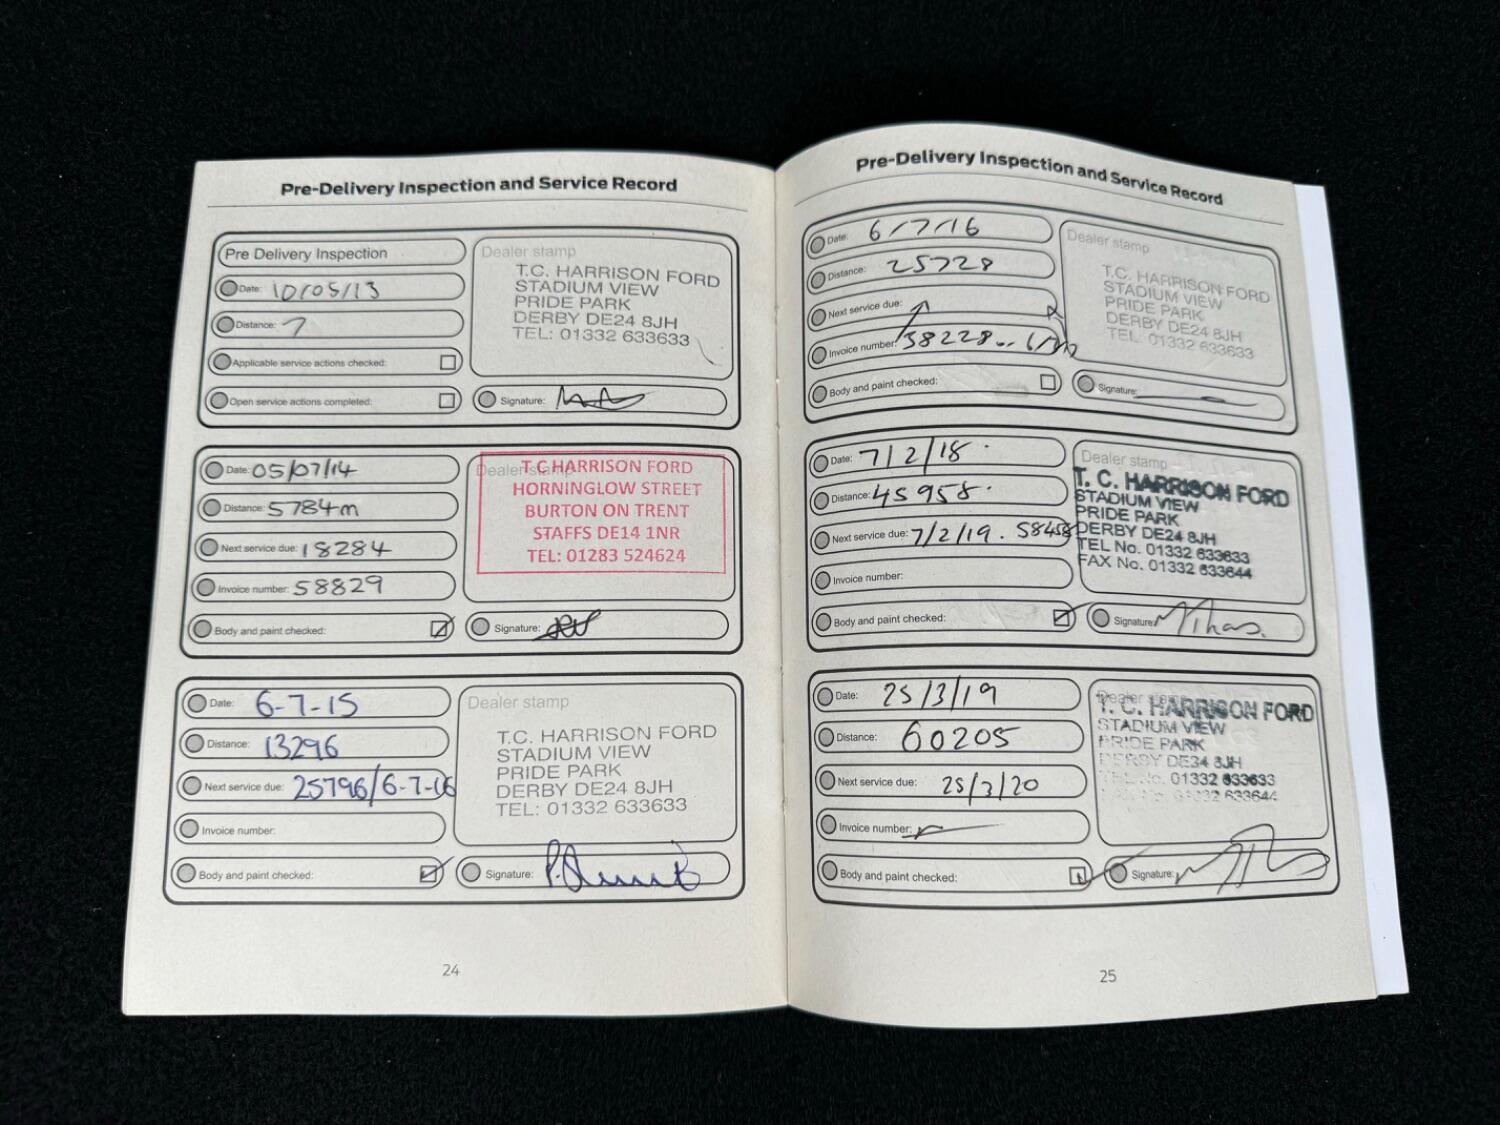 Pre-Delivery Inspection and Service Record
Pre Delivery Inspection
Date: 10/05/13
Distance: 7
Applicable service actions checked:
Open service actions completed:
Dealer stamp
T.C. HARRISON FORD
STADIUM VIEW
PRIDE PARK
DERBY DE24 8JH
TEL: 01332 633633
Signature:
Date: 05/07/14
Distance: 5784m
Next service due: 18284
Invoice number: 58829
Body and paint checked:
Dealer stamp
T.C HARRISON FORD
HORNINGLOW STREET
BURTON ON TRENT
STAFFS DE14 1NR
TEL: 01283 524624
Signature:
Date: 6-7-15
Distance: 13296
Next service due: 25796/6-7-16
Invoice number:
Body and paint checked:
Dealer stamp
T.C. HARRISON FORD
STADIUM VIEW
PRIDE PARK
DERBY DE24 8JH
TEL: 01332 633633
Signature:
24
Pre-Delivery Inspection and Service Record
Date: 6/7/16
Distance: 25728
Next service due:
Invoice number: 38228
Body and paint checked:
Dealer stamp
T.C. HARRISON FORD
STADIUM VIEW
PRIDE PARK
DERBY DE24 8JH
TEL: 01332 633633
Signature:
Date: 7/2/18.
Distance: 45958.
Next service due: 7/2/19. 58458
Invoice number:
Body and paint checked:
Dealer stamp
T. C. HARRISON FORD
STADIUM VIEW
PRIDE PARK
DERBY DE24 8JH
TEL No. 01332 633633
FAX No. 01332 633644
Signature:
Date: 25/3/19
Distance: 60205
Next service due: 25/3/20
Invoice number:
Body and paint checked:
Dealer stamp
T. C. HARRISON FORD
STADIUM VIEW
PRIDE PARK
DERBY DE24 8JH
TEL No. 01332 633633
FAX No. 01332 633644
Signature:
25